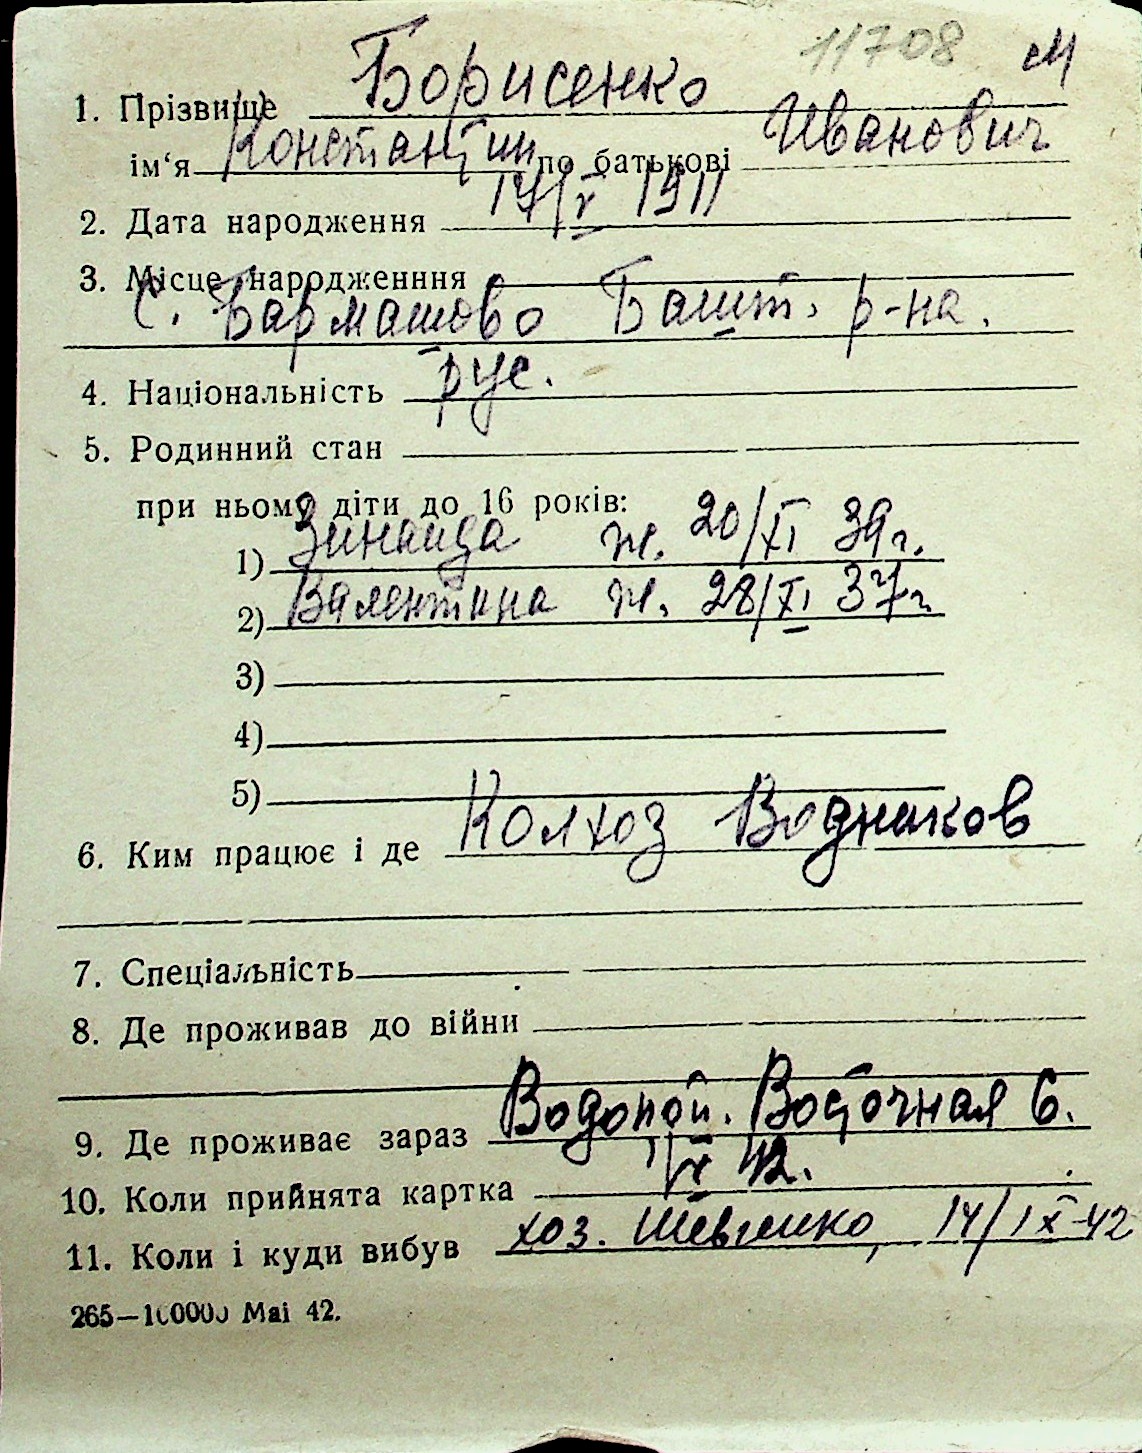 11708 м
1. Прізвище Борисенко
ім‘я Константин по батькові Иванович
2. Дата народження 17/V 1911
3. Місце народженння
с. Бармашово Башт. р-на.
4. Національність рус.
5. Родинний стан
при ньому діти до 16 років:
1) Зинаида ж. 20/XI 39 г.
2) Валентина ж. 28/XI 37 г
3)
4)
5)
6. Ким працює і де Колхоз Водников
7. Спеціальність
8. Де проживав до війни
9. Де проживає зараз Водопой. Восточная 6.
10. Коли прийнята картка 42.
11. Коли і куди вибув хоз. Шевченко, 14/IX-42
265—100000 Mai 42.